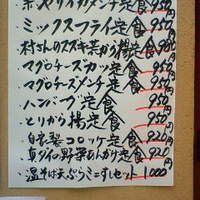 ミックスフライ定食 950円
村さんのスズキ茶がら揚定食 900円
マグロチーズカツ定食 950円
マグロチーズメンチ定食 950円
ハンバーグ定食 950円
とりから揚定食 950円
自家製コロッケ定食 920円
真ダイの野菜あんかけ定食 920円
温そば天ぷらミニすしセット 1000円